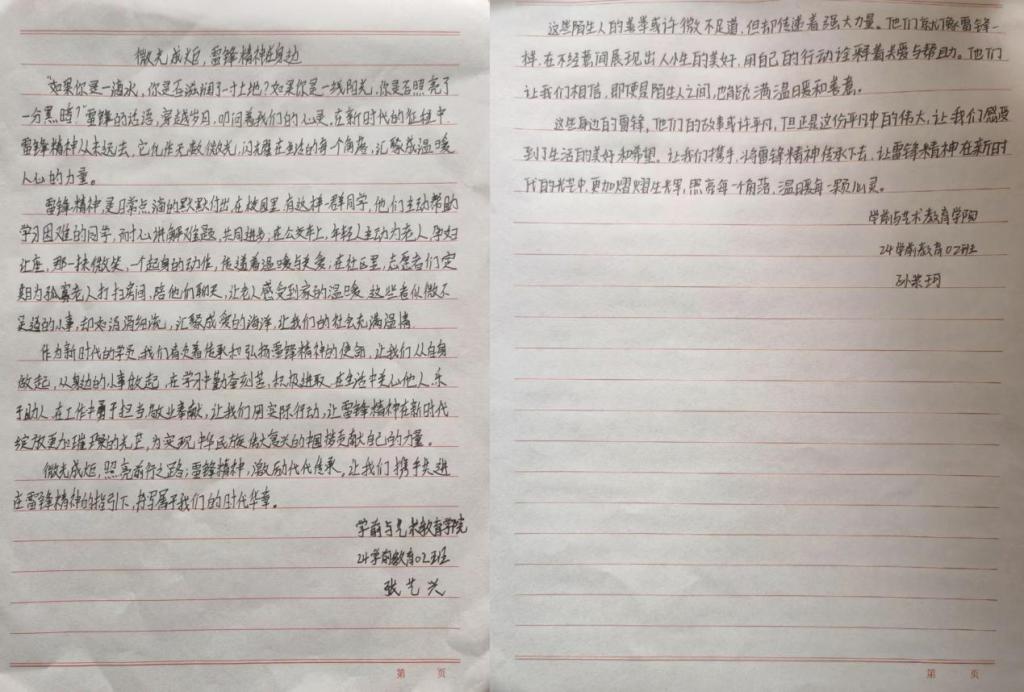 微光成炬,雷锋精神在身边
"如果你是一滴水,你是否滋润了一寸土地?如果你是一线阳光,你是否照亮了
一分黑暗?"雷锋的话语,穿越岁月,叩问着我们的心灵,在新时代的征程中,
雷锋精神从未远去,它化作无数微光,闪耀在生活的每个角落,汇聚成温暖
人心的力量。
雷锋精神,是日常点滴的默默付出,在校园里,有这样一群同学,他们主动帮助
学习困难的同学,耐心讲解难题,共同进步,在公交车上,年轻人主动为老人,孕妇
让座,那一抹微笑,一个起身的动作,传递着温暖与关爱,在社区里,志愿者们定
期为孤寡老人打扫房间,陪他们聊天,让老人感受到家的温暖,这些看似微不
足道的小事,却如涓涓细流,汇聚成爱的海洋,让我们的社会充满温情
作为新时代的学员,我们肩负着传承和弘扬雷锋精神的使命,让我们从自身
做起,从身边的小事做起,在学习中勤奋刻苦,积极进取,在生活中关心他人,乐
于助人,在工作中勇于担当,敬业奉献,让我们用实际行动,让雷锋精神在新时代
绽放更加璀璨的光芒,为实现中华民族伟大复兴的中国梦贡献自己的力量。
微光成炬,照亮前行之路;雷锋精神,激励代代传承,让我们携手共进
在雷锋精神的指引下,书写属于我们的时代华章。
学前与艺术教育学院
24学前教育02班
张艺兴
这些陌生人的善举或许微不足道,但却传递着强大力量。他们就像雷锋一
样,在不经意间展现出人性的美好,用自己的行动诠释着关爱与帮助。他们
让我们相信,即使是陌生人之间,也能充满温暖和善意。
这些身边的雷锋,他们的故事或许平凡,但正是这份平凡中的伟大,让我们感受
到了生活的美好和希望。让我们携手,将雷锋精神传承下去,让雷锋精神在新时
代的光芒中,更加熠熠生辉,照亮每一个角落,温暖每一颗心灵。
学前与艺术教育学院
24学前教育02班
孙艺珂
第 页
第 页